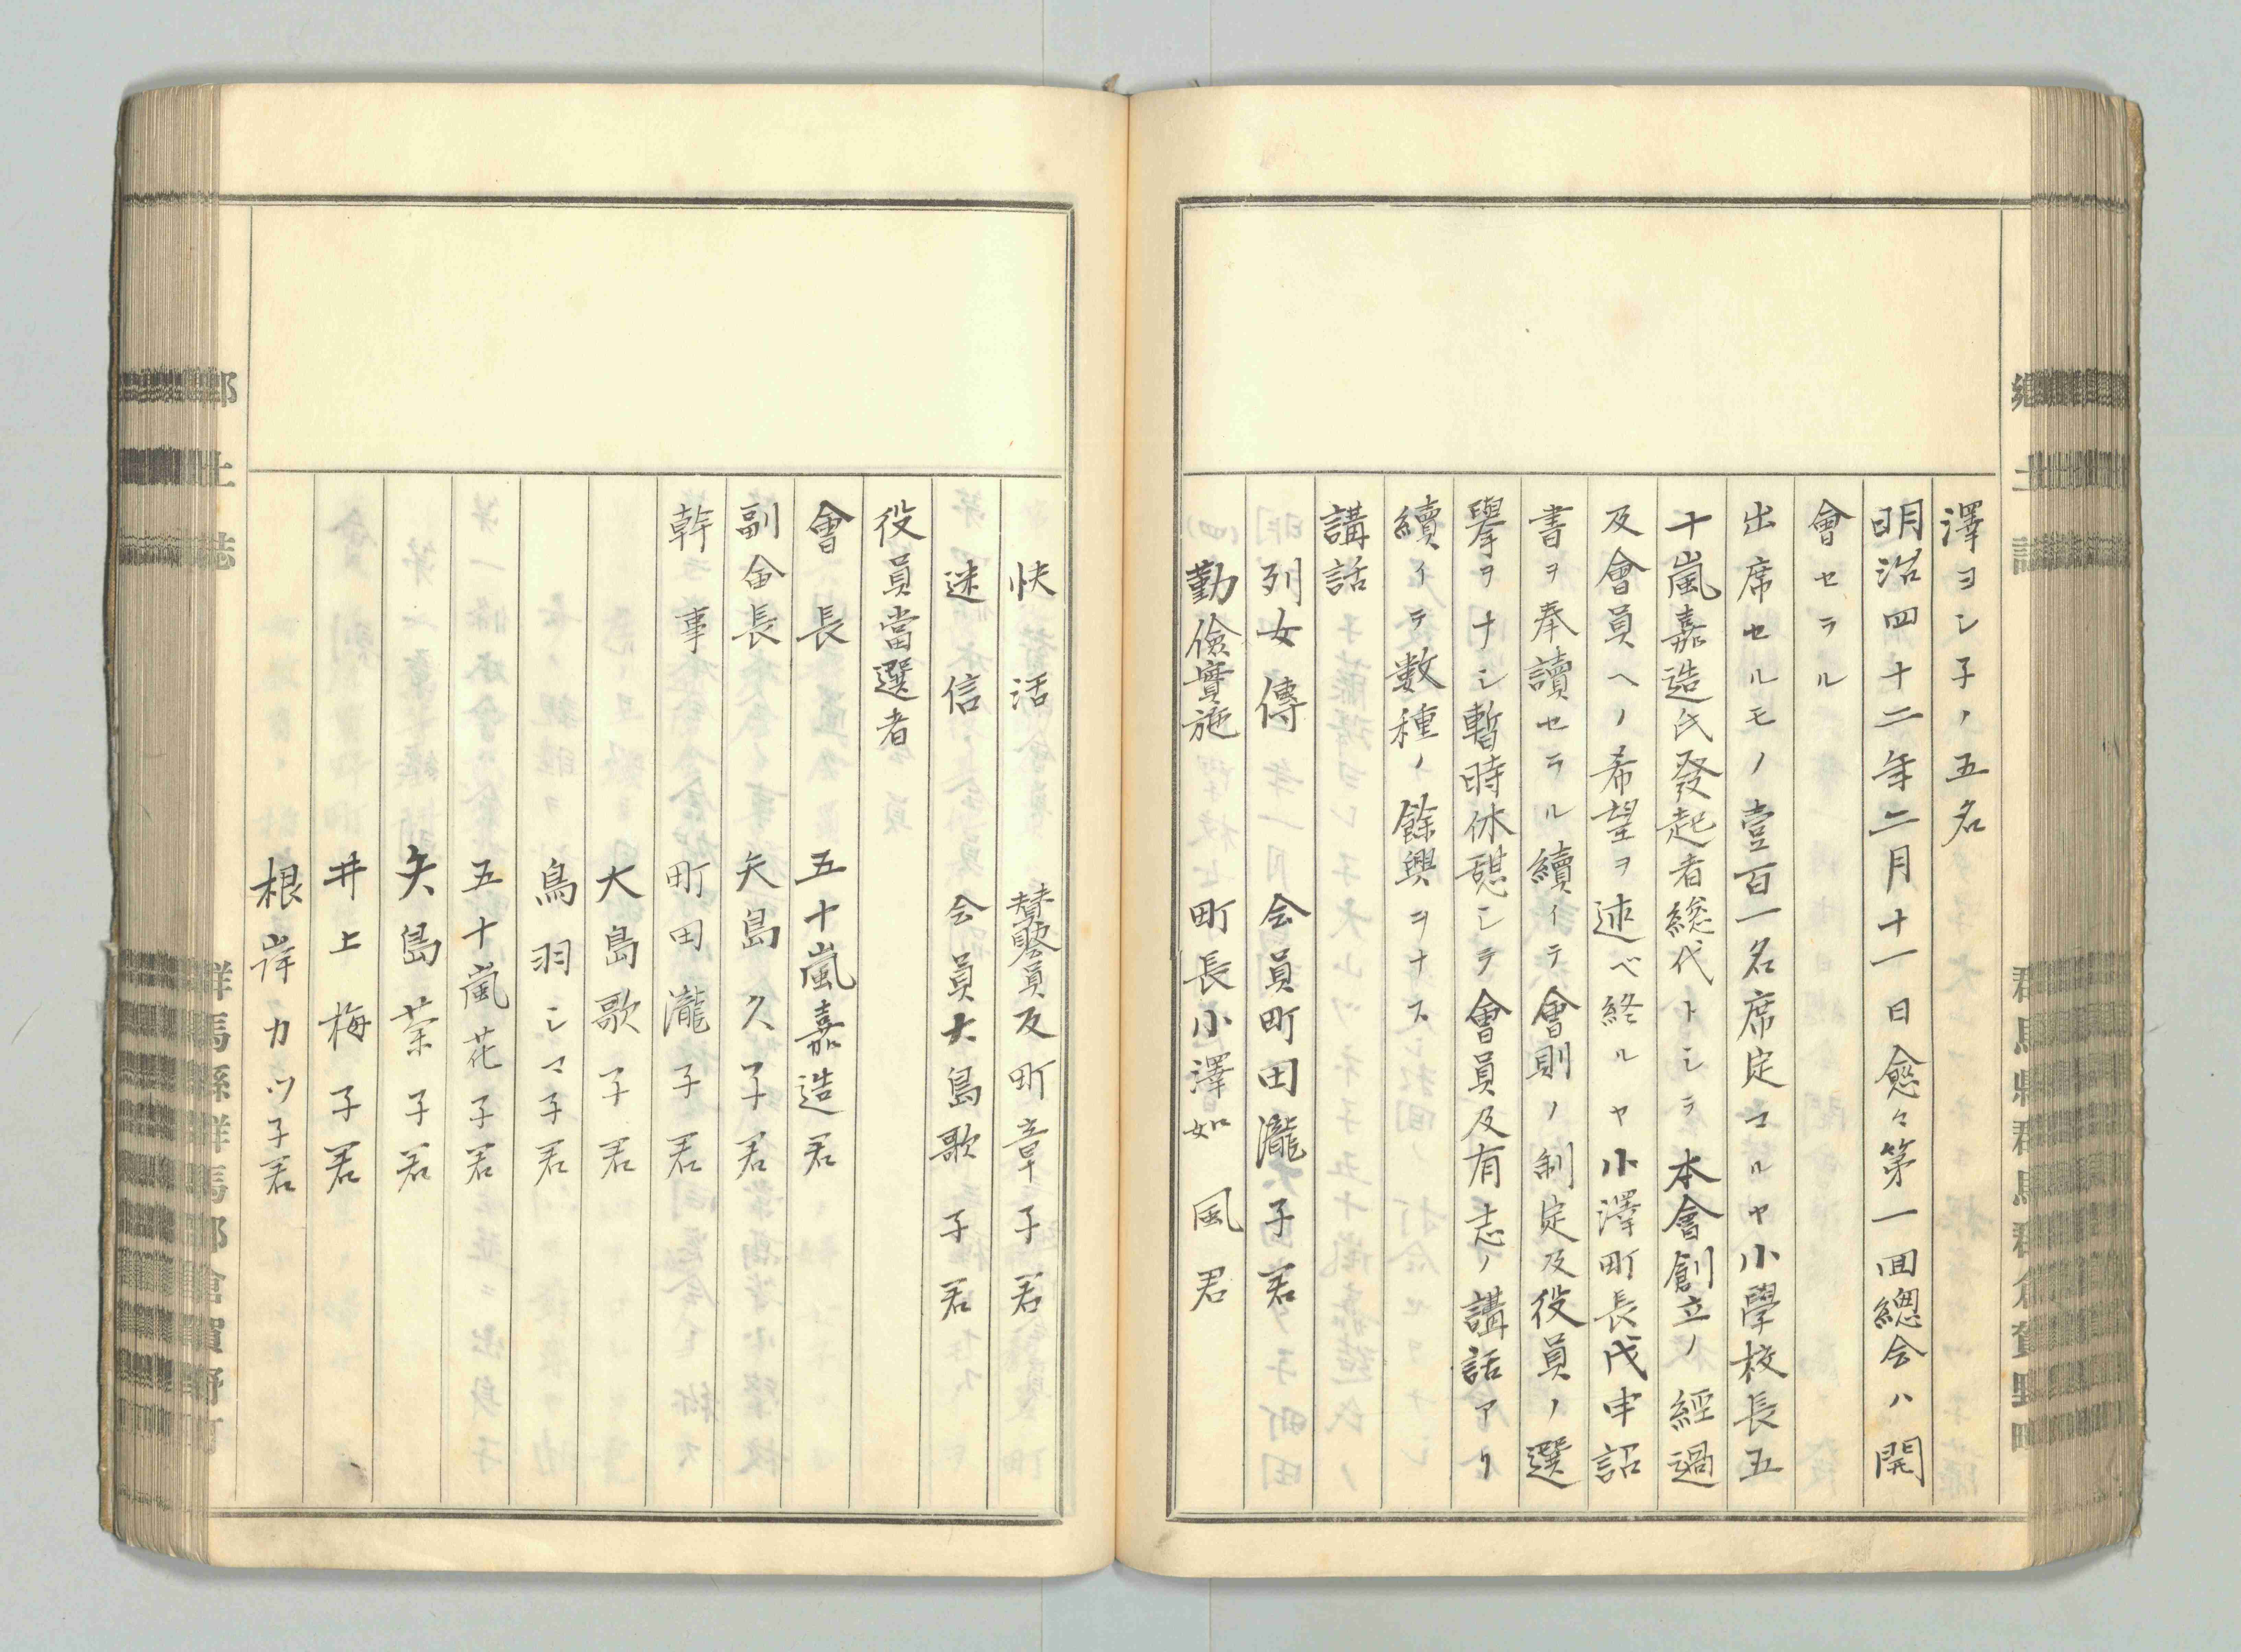 澤ヨシ子ノ五名
明治四十二年二月十一日愈々第一回總会ハ開
會セラル
出席セルモノ壹百一名席定マルヤ小學校長五
十嵐嘉造氏發起者総代トシテ本會創立ノ經過
及會員ヘノ希望ヲ述ベ終ルヤ小澤町長戊申詔
書ヲ奉讀セラル續イテ會則ノ制定及役員ノ選
擧ヲナシ暫時休憩シテ會員及有志ノ講話アリ
續イテ数種ノ餘興ヲナス
講話
列女傳 会員町田瀧子君
勤儉實施 町長小澤如風君
快活 賛襄員及町章子君
迷信 会員大島歌子君
役員當選者
會長 五十嵐嘉造君
副会長 矢島久子君
幹事 町田瀧子君
大島歌子君
鳥羽シマ子君
五十嵐花子君
矢島業子君
井上梅子君
根岸カツ子君
郷土誌
群馬縣群馬郡倉賀野町